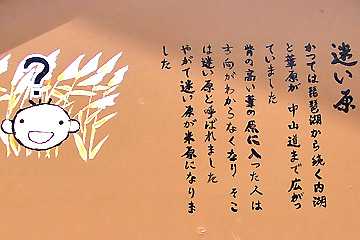 迷い原
かつては琵琶湖から続く内湖
と葦原が 中山道まで広がっ
ていました
背の高い葦の原に入った人は
方向がわからなくなり そこ
は迷い原と呼ばれました
やがて迷い原が米原になりま
した
?